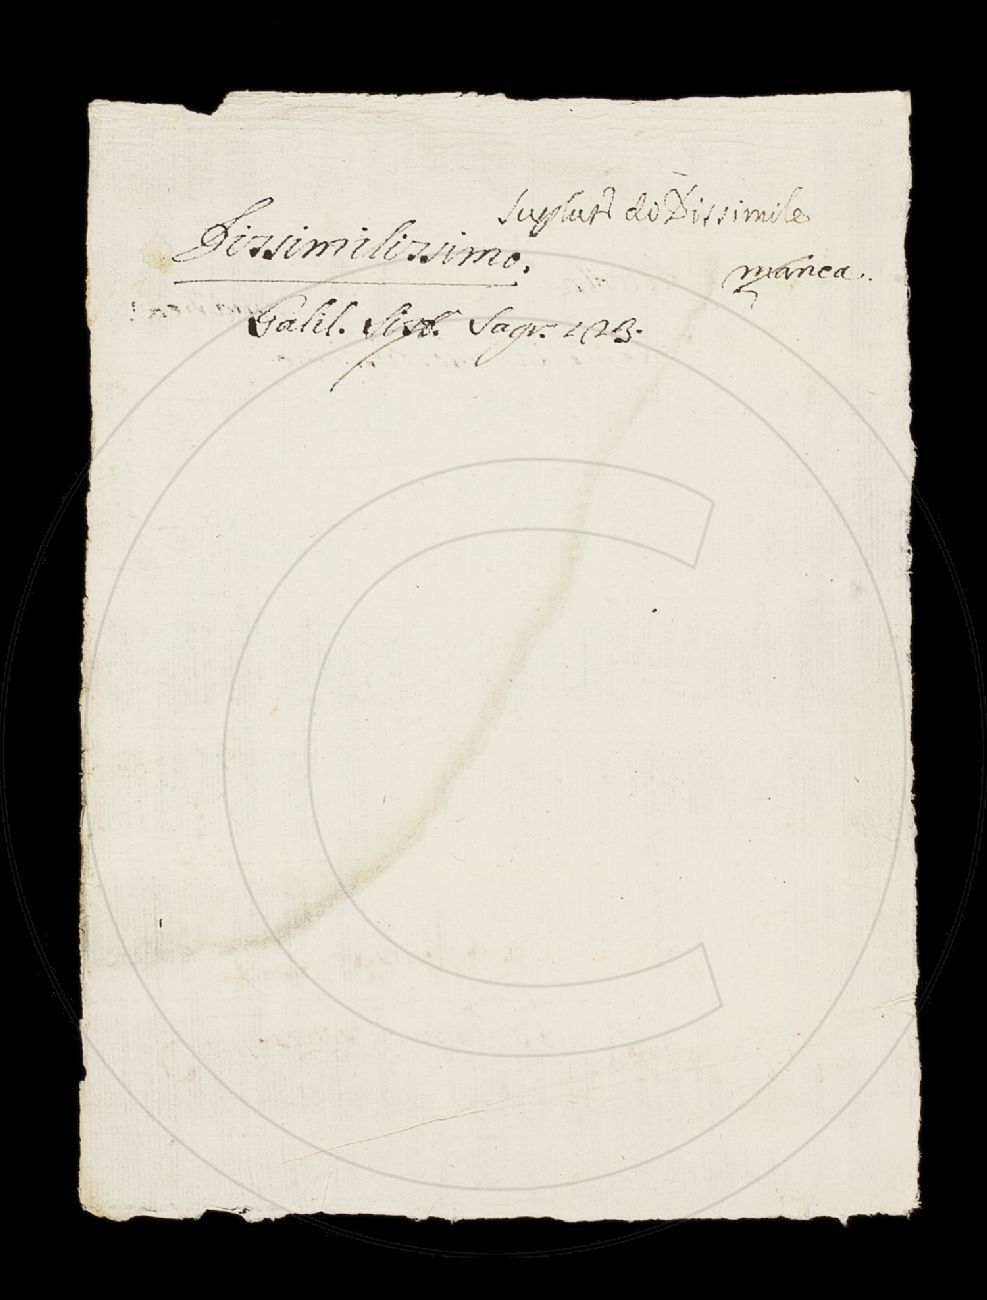 Superlat.º di Dissimile
Dissimilissimo.
manca.
Galil. Sist. Sagr. 173.